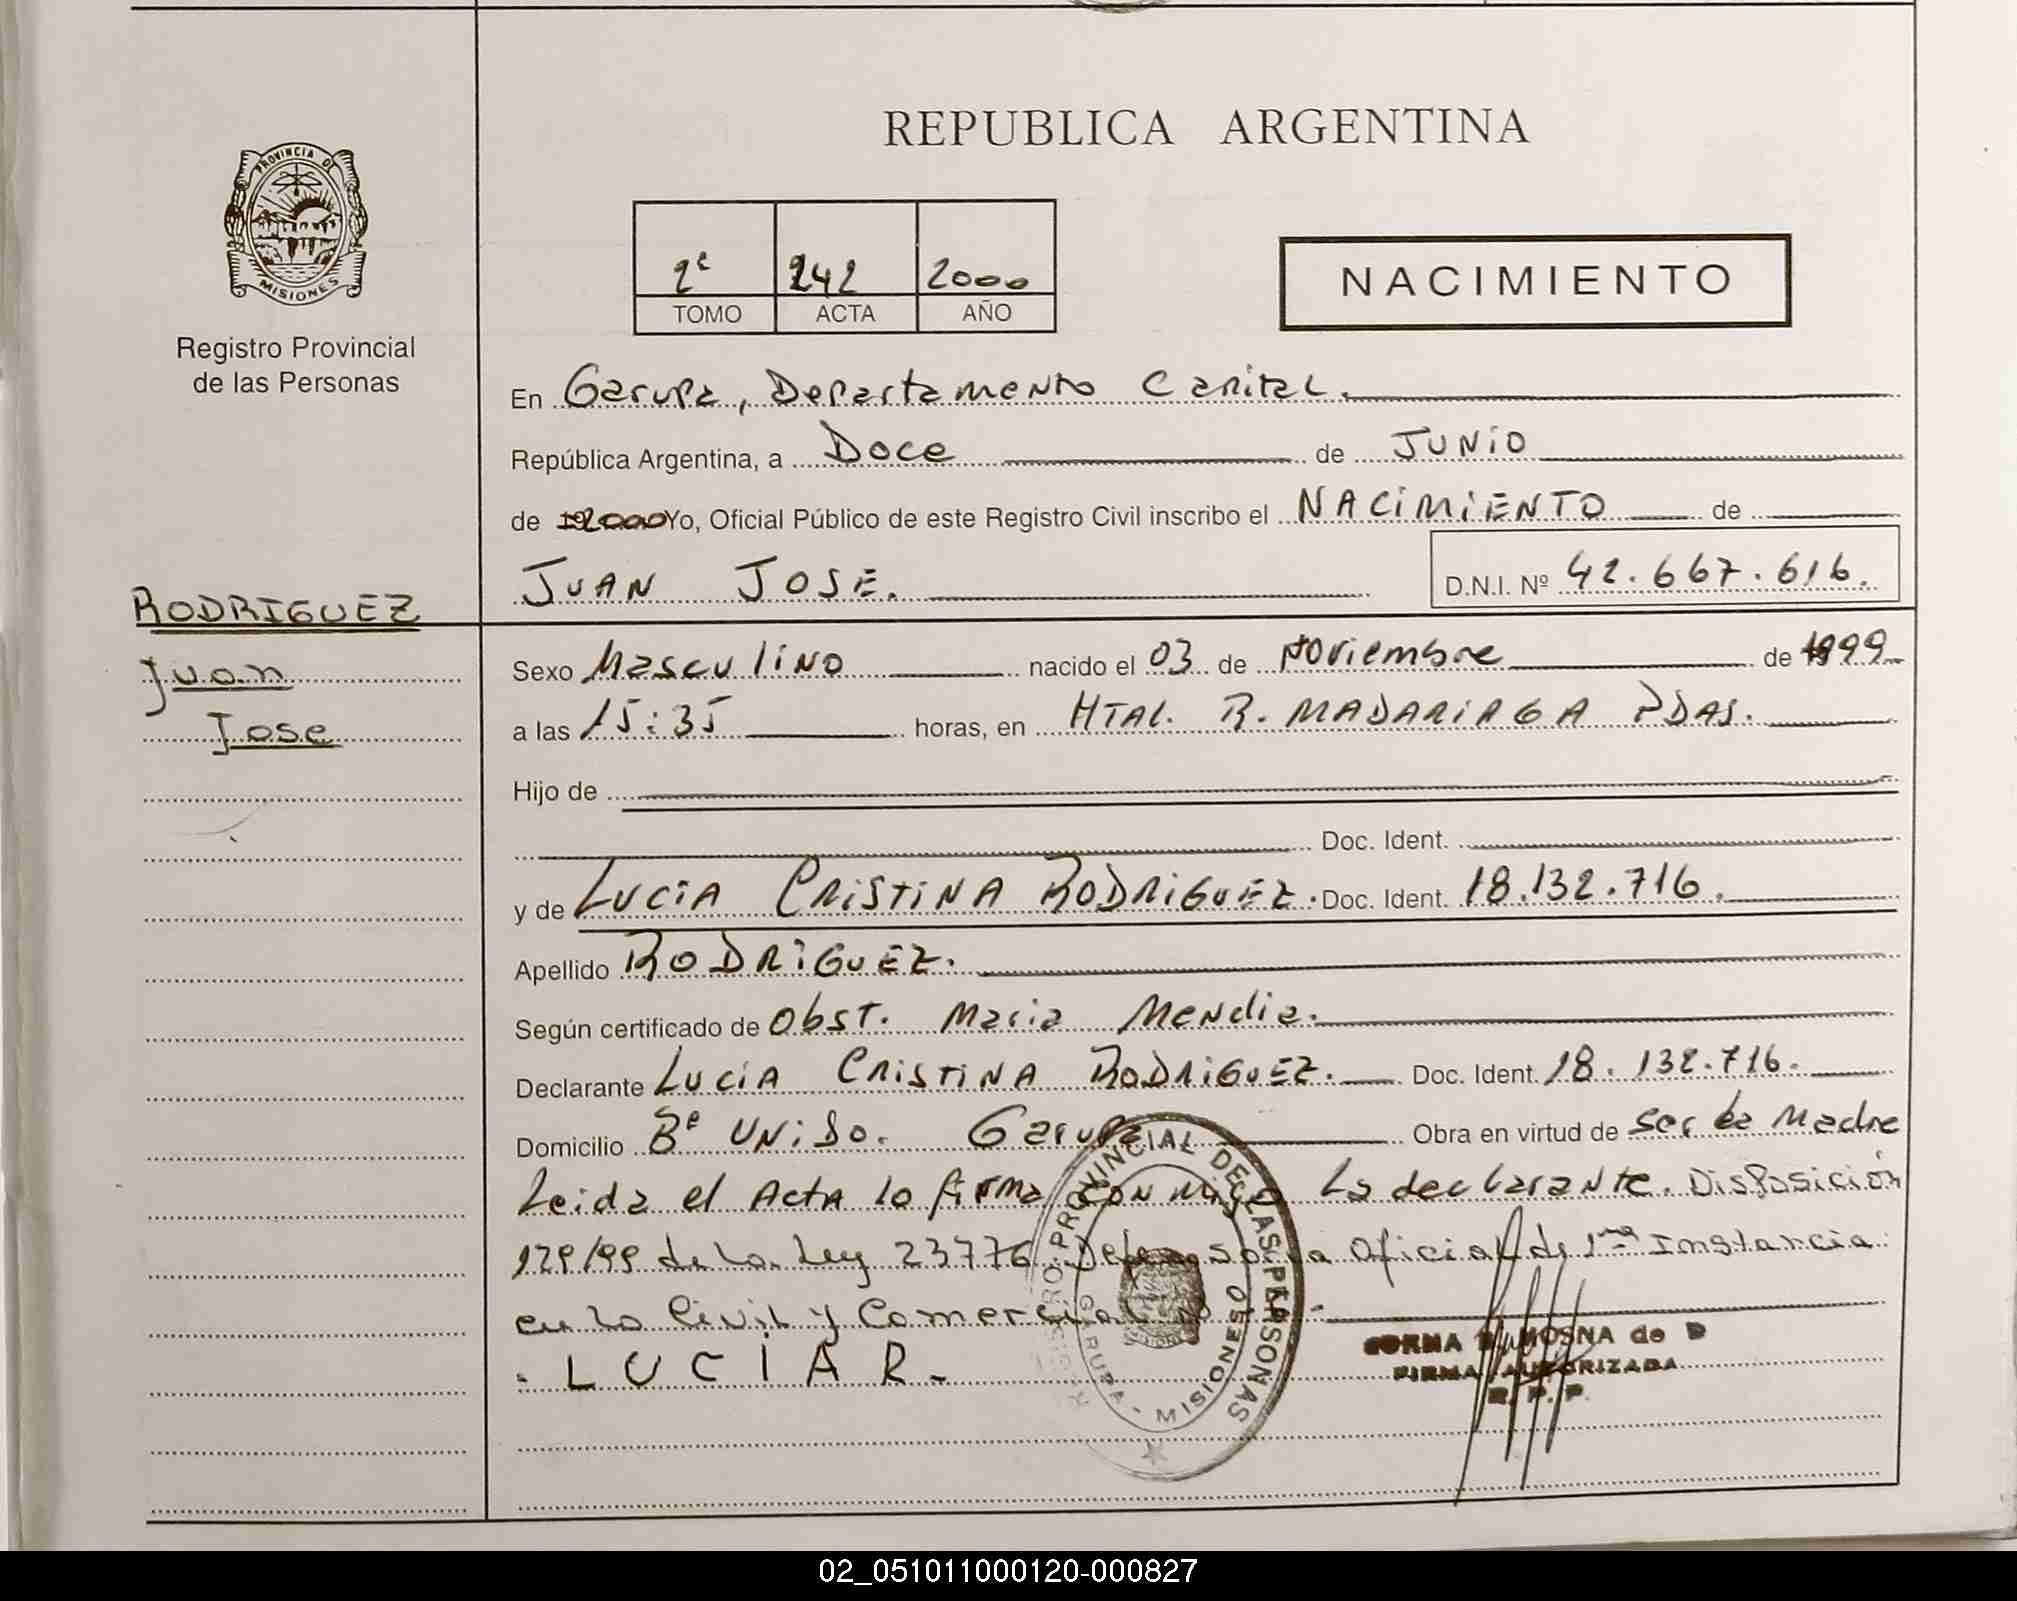 REPUBLICA ARGENTINA
PROVINCIA DE MISIONES
Registro Provincial
de las Personas
2º 242 2000
TOMO ACTA AÑO
NACIMIENTO
En Garupa, Departamento Capital.
República Argentina, a Doce de JUNIO
de 2000 Yo, Oficial Público de este Registro Civil inscribo el NACIMIENTO de
JUAN JOSE. D.N.I. Nº 42.667.616.
RODRIGUEZ
Juan
Jose
Sexo Masculino nacido el 03 de Noviembre de 1999
a las 15:35 horas, en HTAL. R. MADARIAGA PDAS.
Hijo de
Doc. Ident.
y de LUCIA CRISTINA RODRIGUEZ. Doc. Ident. 18.132.716.
Apellido RODRIGUEZ.
Según certificado de Obst. Maria Mendia.
Declarante LUCIA CRISTINA RODRIGUEZ. Doc. Ident. 18.132.716.
Domicilio Bº UNIDO. Garupa Obra en virtud de ser la Madre
Leida el Acta lo firma conmigo La declarante. Disposición
129/99 de la Ley 23776 Defensoria Oficial de 1ra Instancia
en lo Civil y Comercial
. LUCIA R.
REGISTRO PROVINCIAL DE LAS PERSONAS
GARUPA - MISIONES
MOSNA de D
FIRMA AUTORIZADA
R. P. P.
02_051011000120-000827